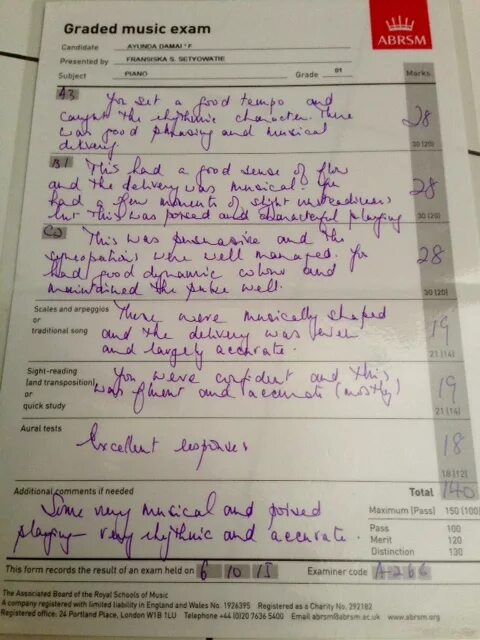 Graded music exam
ABRSM
Candidate AYUNDA DAMAI * F
Presented by FRANSISKA S. SETYOWATIE
Subject PIANO Grade 01 Marks
A3 You set a good tempo and
caught the rhythmic character. There
was good phrasing and musical
delivery.
28
30 (20)
B1 This had a good sense of flow
and the delivery was musical. You
had a few moments of slight unsteadiness
but this was poised and characterful playing
28
30 (20)
C2 This was persuasive and the
syncopations were well managed. You
had good dynamic colour and
maintained the pulse well.
28
30 (20)
Scales and arpeggios
or
traditional song
These were musically shaped
and the delivery was even
and largely accurate.
19
21 (14)
Sight-reading
(and transposition)
or
quick study
You were confident and this
was fluent and accurate (mostly)
19
21 (14)
Aural tests
Excellent responses
18
18 (12)
Additional comments if needed Total 140
Some very musical and poised
playing - very rhythmic and accurate.
Maximum (Pass) 150 (100)
Pass 100
Merit 120
Distinction 130
This form records the result of an exam held on 6 10 15 Examiner code A-266
The Associated Board of the Royal Schools of Music
A company registered with limited liability in England and Wales No. 1926395 Registered as a Charity No. 292182
Registered office: 24 Portland Place, London W1B 1LU Telephone +44 (0)20 7636 5400 Email abrsm@abrsm.ac.uk www.abrsm.org